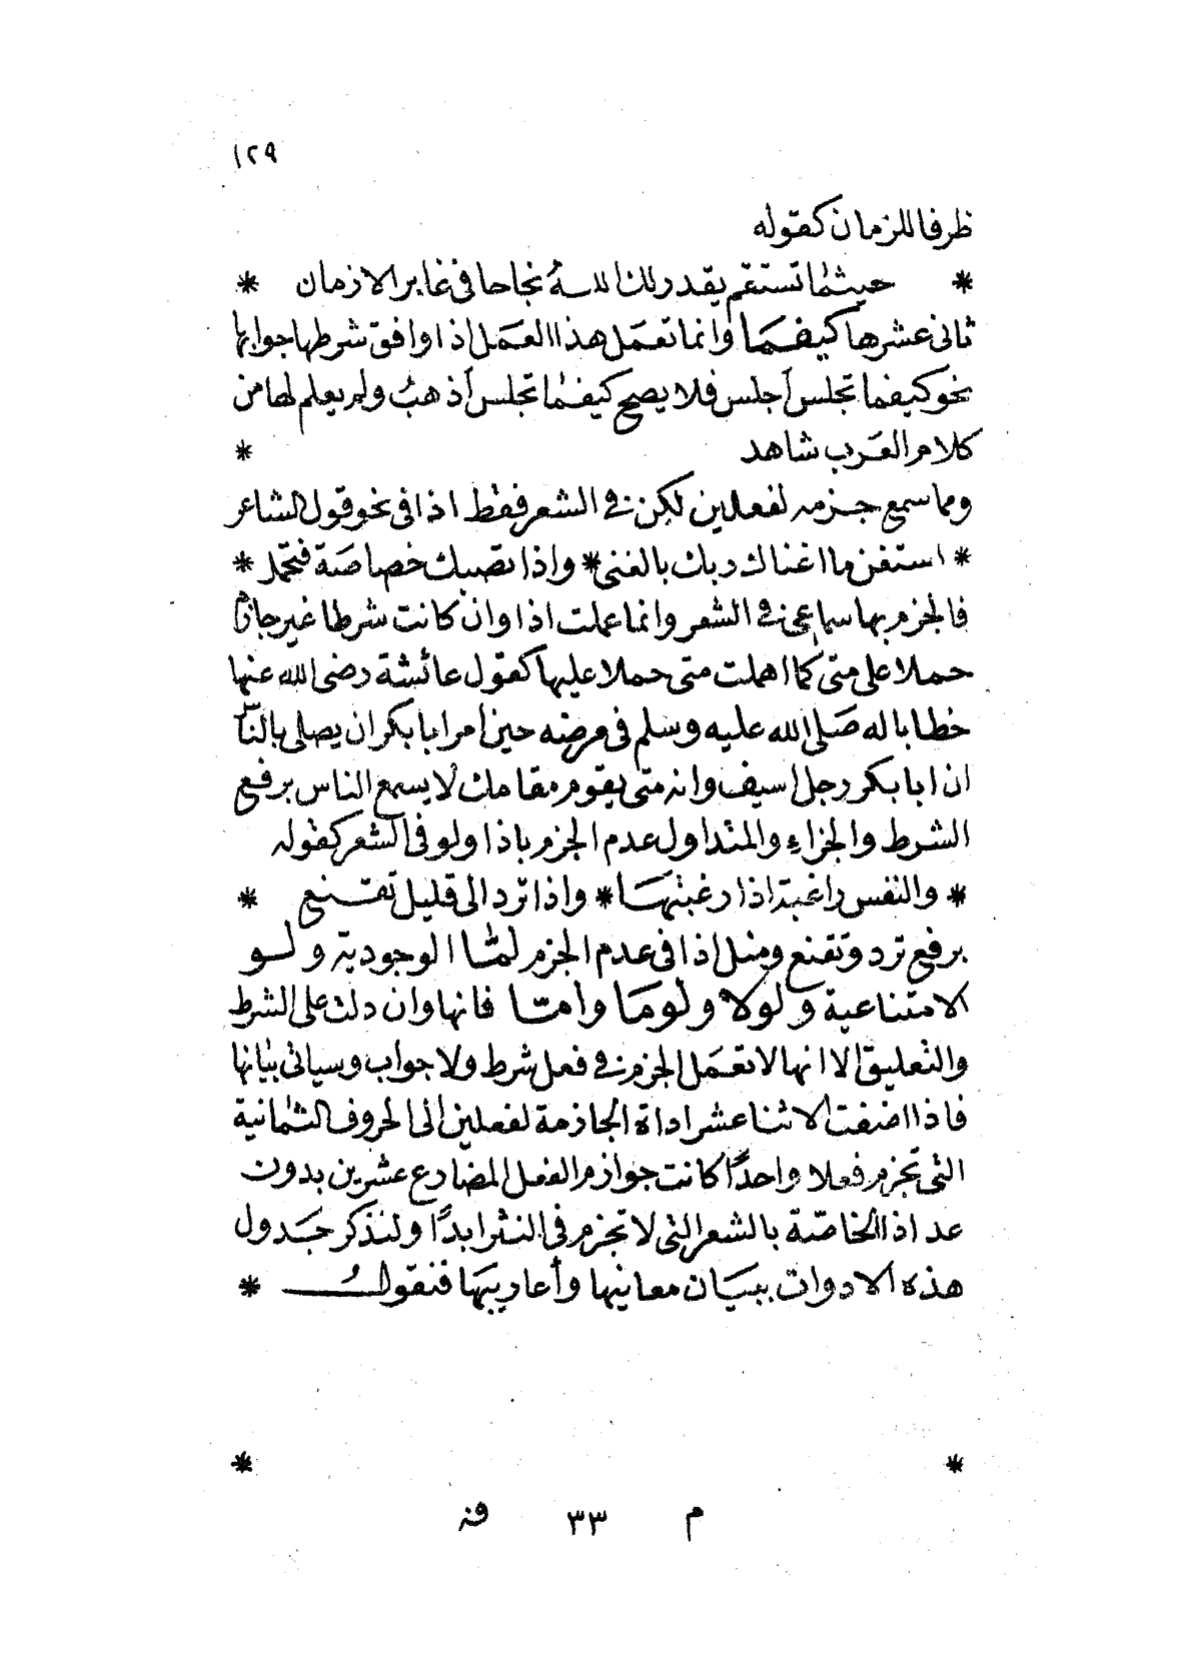 ١٢٩
ظرفا للزمان كقوله
* حيثما تستقم يقدر لك الله نجاحا فى غابر الازمان *
ثانى عشرها كيفما وانما تعمل هذا العمل اذا وافق شرطها جوابها
نحو كيفما تجلس أجلس فلا يصح كيفما تجلس أذهب ولم يعلم لها من
كلام العرب شاهد *
ومما سمع جزمه لفعلين لكن فى الشعر فقط اذا فى نحو قول الشاعر
* استغن ما اغناك ربك بالغنى * واذا تصبك خصاصة فتجمل *
فالجزم بها سماعى فى الشعر وانما عملت اذا وان كانت شرطا غير جازم
حملا على متى كما اهملت متى حملا عليها كقول عائشة رضى الله عنها
خطابا له صلى الله عليه وسلم فى مرضه حين أمر ابا بكر ان يصلى بالناس
ان ابا بكر رجل اسيف وانه متى يقوم مقامك لا يسمع الناس برفع
الشرط والجزاء والمتداول عدم الجزم باذا ولو فى الشعر كقوله
* والنفس راغبة اذا رغبتها * واذا ترد الى قليل تقنع *
برفع ترد وتقنع ومثل اذا فى عدم الجزم لما الوجودية ولو
الامتناعية ولولا ولوما وامّا فانها وان دلت على الشرط
والتعليق الا انها لا تعمل الجزم فى فعل شرط ولا جواب وسيأتى بيانها
فاذا اضفت الاثنا عشر اداة الجازمة لفعلين الى الحروف الثمانية
التى تجزم فعلا واحدًا كانت جوازم الفعل المضارع عشرين بدون
عد اذا الخاصّة بالشعر التى لا تجزم فى النثر ابدًا ولنذكر جدول
هذه الادوات ببيان معانيها وأعاريبها فنقول *
* *
م ٣٣ فن